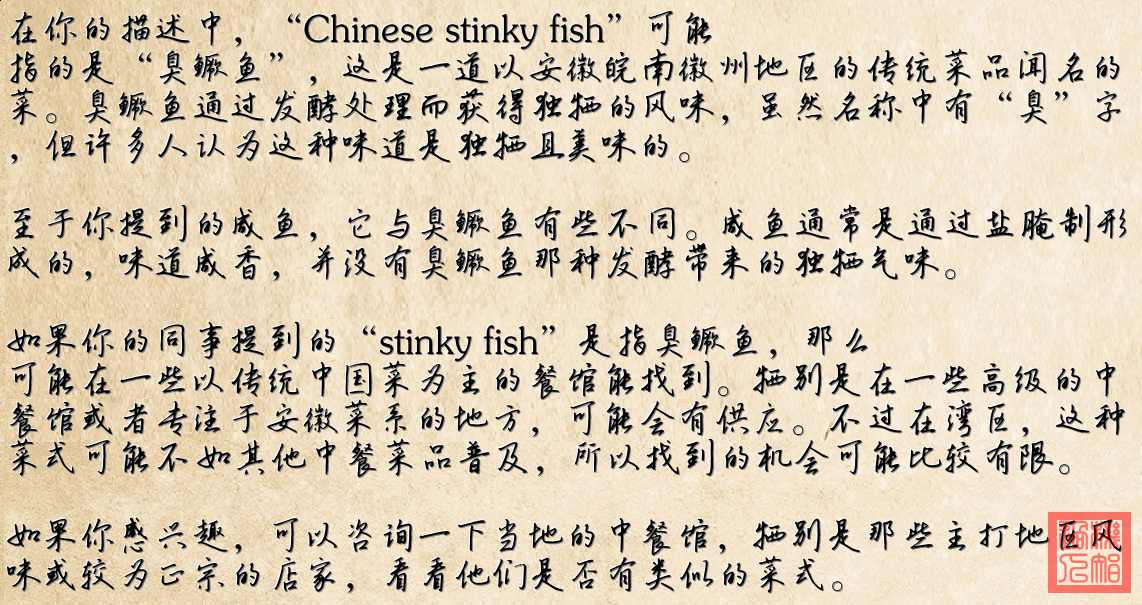 在你的描述中，“Chinese stinky fish”可能
指的是“臭鳜鱼”，这是一道以安徽皖南徽州地区的传统菜品闻名的
菜。臭鳜鱼通过发酵处理而获得独特的风味，虽然名称中有“臭”字
，但许多人认为这种味道是独特且美味的。
至于你提到的咸鱼，它与臭鳜鱼有些不同。咸鱼通常是通过盐腌制形
成的，味道咸香，并没有臭鳜鱼那种发酵带来的独特气味。
如果你的同事提到的“stinky fish”是指臭鳜鱼，那么
可能在一些以传统中国菜为主的餐馆能找到。特别是在一些高级的中
餐馆或者专注于安徽菜系的地方，可能会有供应。不过在湾区，这种
菜式可能不如其他中餐菜品普及，所以找到的机会可能比较有限。
如果你感兴趣，可以咨询一下当地的中餐馆，特别是那些主打地区风
味或较为正宗的店家，看看他们是否有类似的菜式。